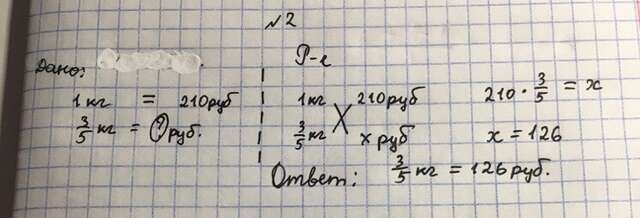 №2
Дано:
1 кг = 210 руб
3/5 кг = ? руб.
Р-е
1 кг 210 руб
3/5 кг х руб
210 · 3/5 = х
х = 126
Ответ: 3/5 кг = 126 руб.